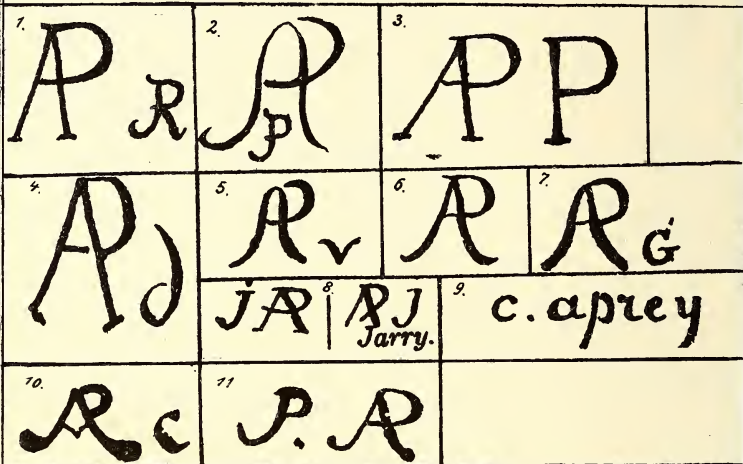 1.
AP R
2.
AP
P
3.
AP P
4.
AP
5.
AP v
6.
AP
7.
AP G
8.
J AP
AP J
Jarry.
9.
c. aprey
10.
AP c
11
P. AP